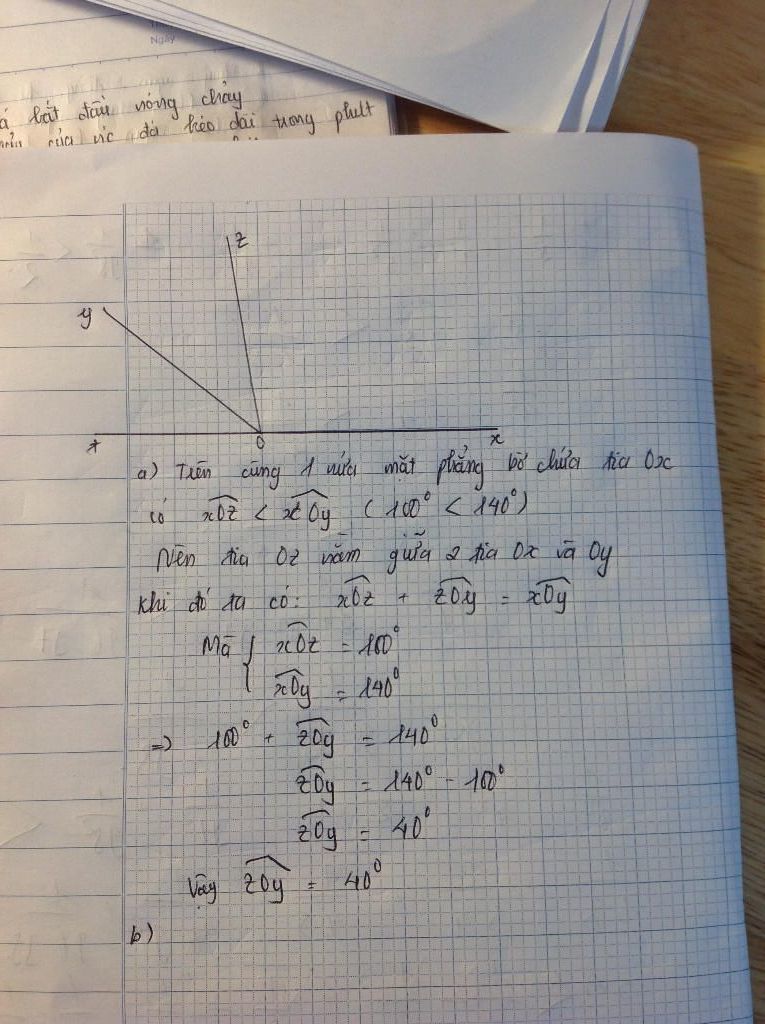 Ngày
bắt đầu nóng chảy
của nước đá kéo dài trong phút
z
y
t
O
x
a) Trên cùng 1 nửa mặt phẳng bờ chứa tia Ox
có xOz < xOy (100° < 140°)
Nên tia Oz nằm giữa 2 tia Ox và Oy
Khi đó ta có: xOz + zOy = xOy
Mà { xOz = 100°
xOy = 140°
=> 100° + zOy = 140°
zOy = 140° - 100°
zOy = 40°
Vậy zOy = 40°
b)